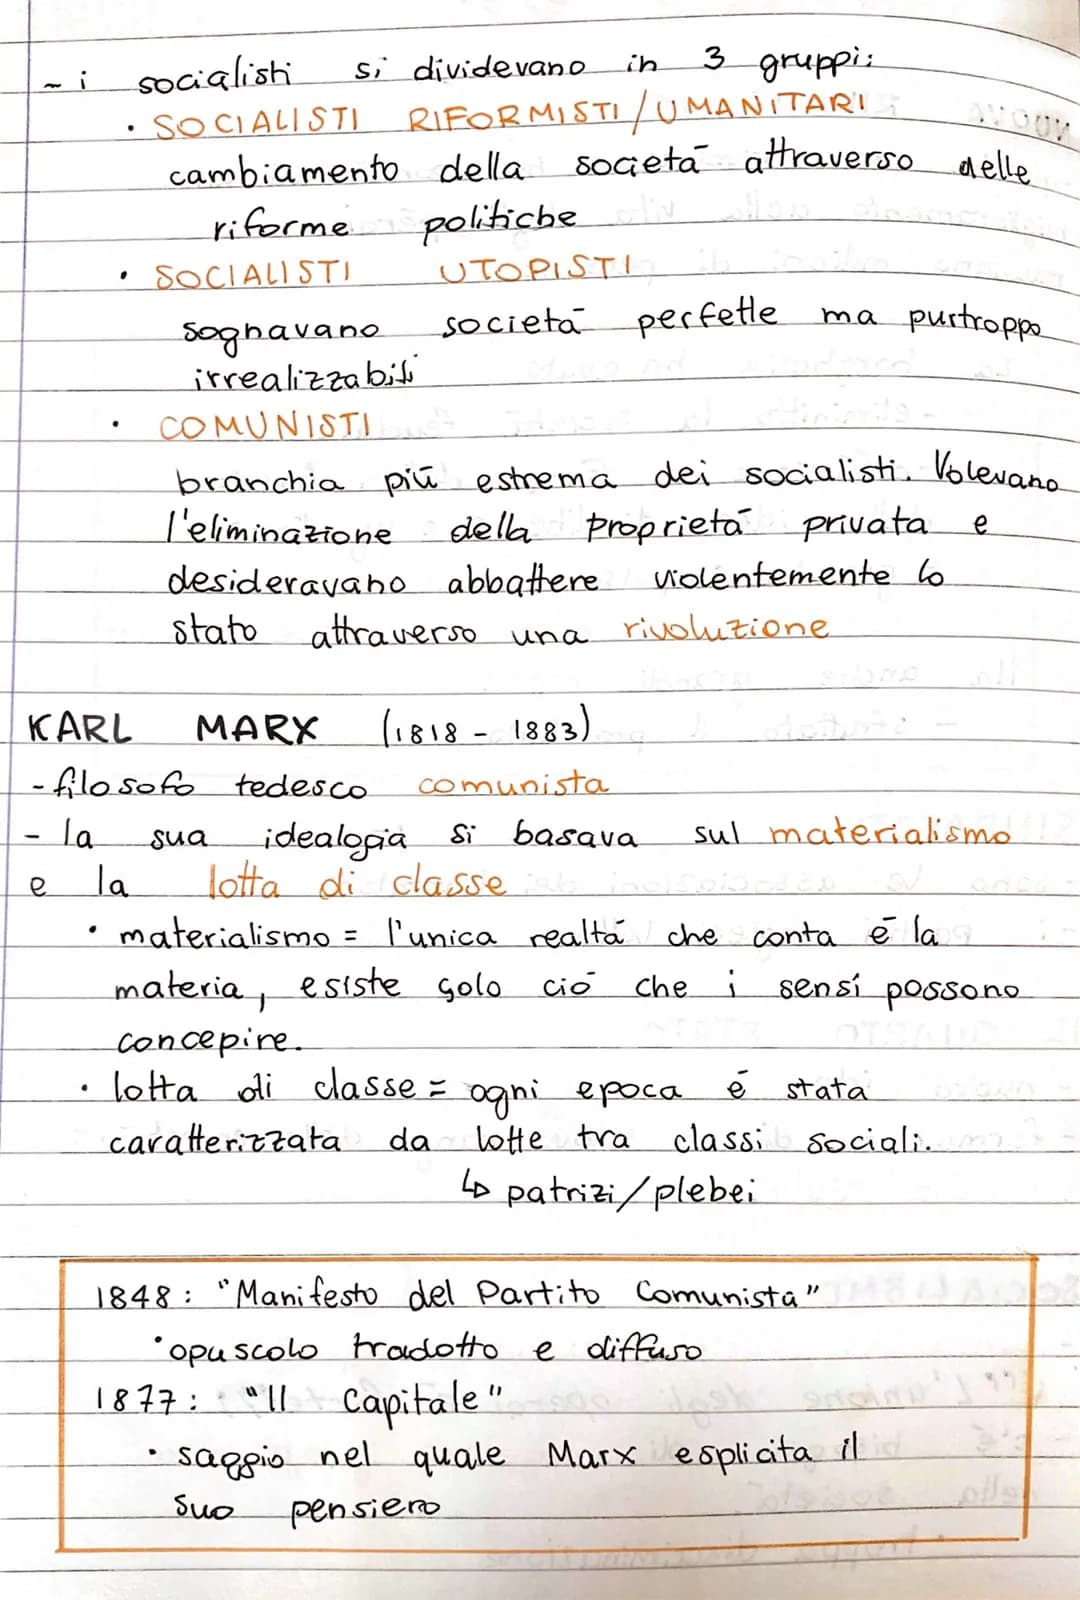 ~ i socialisti si dividevano in 3 gruppi:
• SOCIALISTI RIFORMISTI/UMANITARI
cambiamento della società attraverso delle
riforme politiche
• SOCIALISTI UTOPISTI
sognavano società perfette ma purtroppo
irrealizzabili
• COMUNISTI
branchia più estrema dei socialisti. Volevano
l'eliminazione della proprietà privata e
desideravano abbattere violentemente lo
stato attraverso una rivoluzione
KARL MARX (1818 - 1883)
- filosofo tedesco comunista
- la sua idealogia si basava sul materialismo
e la lotta di classe
• materialismo = l'unica realtá che conta è la
materia, esiste solo ció che i sensí possono
concepire.
• lotta di classe = ogni epoca é stata
caratterizzata da lotte tra classi sociali.
↳ patrizi/plebei
1848: "Manifesto del Partito Comunista"
• opuscolo tradotto e diffuso
1877: "Il Capitale"
• saggio nel quale Marx esplicita il
suo pensiero